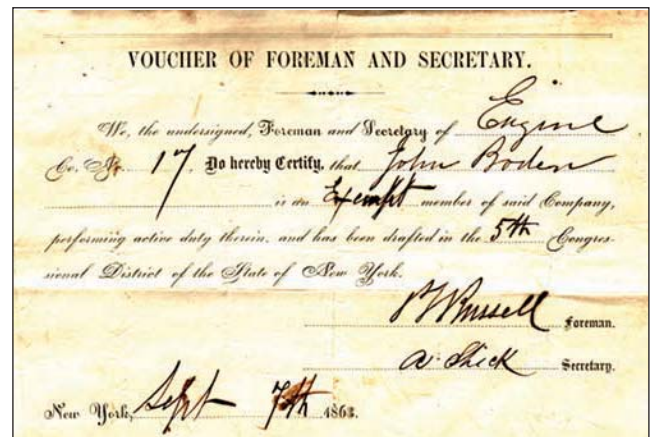 VOUCHER OF FOREMAN AND SECRETARY.
We, the undersigned, Foreman and Secretary of Engine
Co. No. 17. Do hereby Certify, that John Boden
is an Exempt member of said Company,
performing active duty therein, and has been drafted in the 5th Congres-
sional District of the State of New York.
Russell Foreman.
Shick Secretary.
New York, Sept 7th 1863.